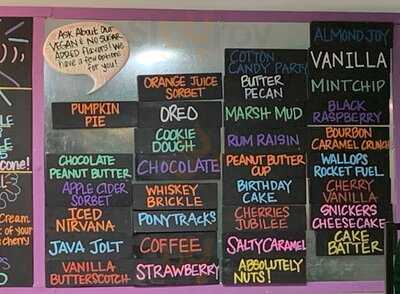 Ask About Our
VEGAN & NO SUGAR
ADDED flavors! We
have a few options
for you!
PUMPKIN
PIE
CHOCOLATE
PEANUT BUTTER
APPLE CIDER
SORBET
ICED
NIRVANA
JAVA JOLT
VANILLA
BUTTERSCOTCH
ORANGE JUICE
SORBET
OREO
COOKIE
DOUGH
CHOCOLATE
WHISKEY
BRICKLE
PONYTRACKS
COFFEE
STRAWBERRY
COTTON
CANDY PARTY
BUTTER
PECAN
MARSH MUD
RUM RAISIN
PEANUT BUTTER
CUP
BIRTHDAY
CAKE
CHERRIES
JUBILEE
SALTY CARAMEL
ABSOLUTELY
NUTS!
ALMOND JOY
VANILLA
MINT CHIP
BLACK
RASPBERRY
BOURBON
CARAMEL CRUNCH
WALLOPS
ROCKET FUEL
CHERRY
VANILLA
SNICKERS
CHEESECAKE
CAKE
BATTER
Cream
of your
cherry